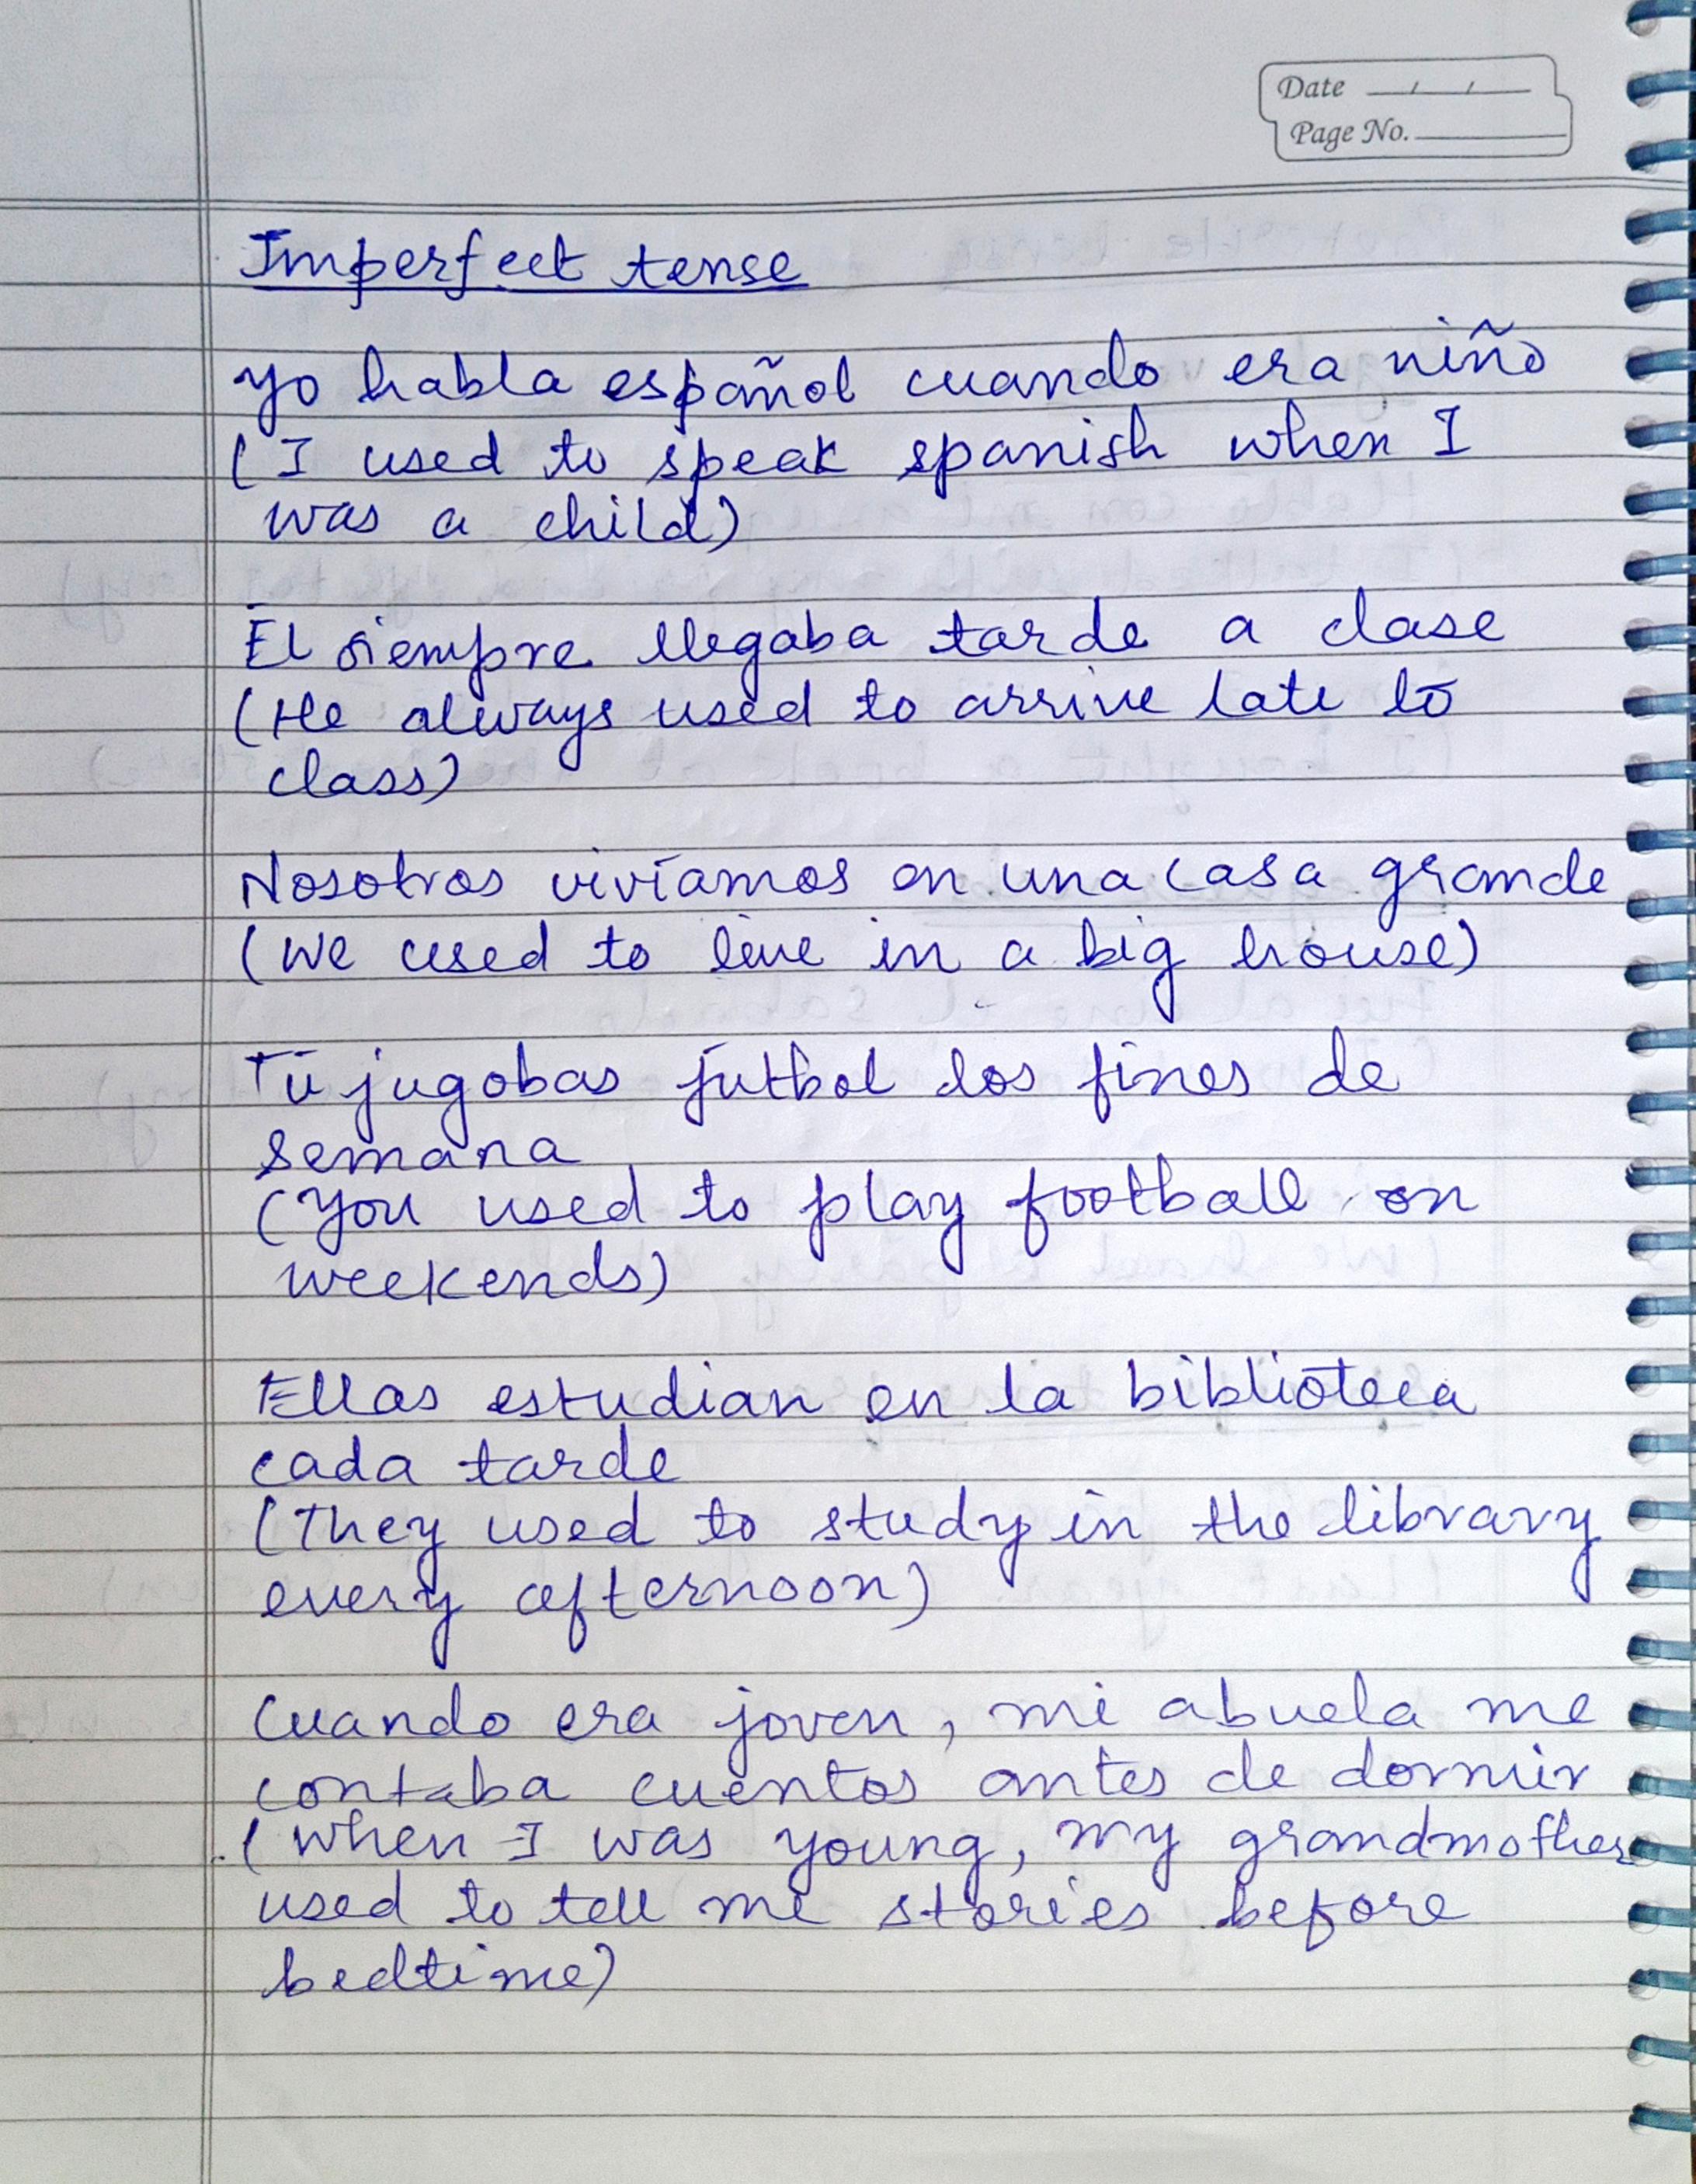 Date __/__/__
Page No.
Imperfect tense
Yo habla español cuando era niño
(I used to speak spanish when I
was a child)
El siempre llegaba tarde a clase
(He always used to arrive late to
class)
Nosotros vivíamos en una casa grande
(We used to live in a big house)
Tú jugobas fútbol los fines de
semana
(You used to play football on
weekends)
Ellas estudian en la biblioteca
cada tarde
(They used to study in the library
every afternoon)
Cuando era joven, mi abuela me
contaba cuentos antes de dormir
(When I was young, my grandmother
used to tell me stories before
bedtime)